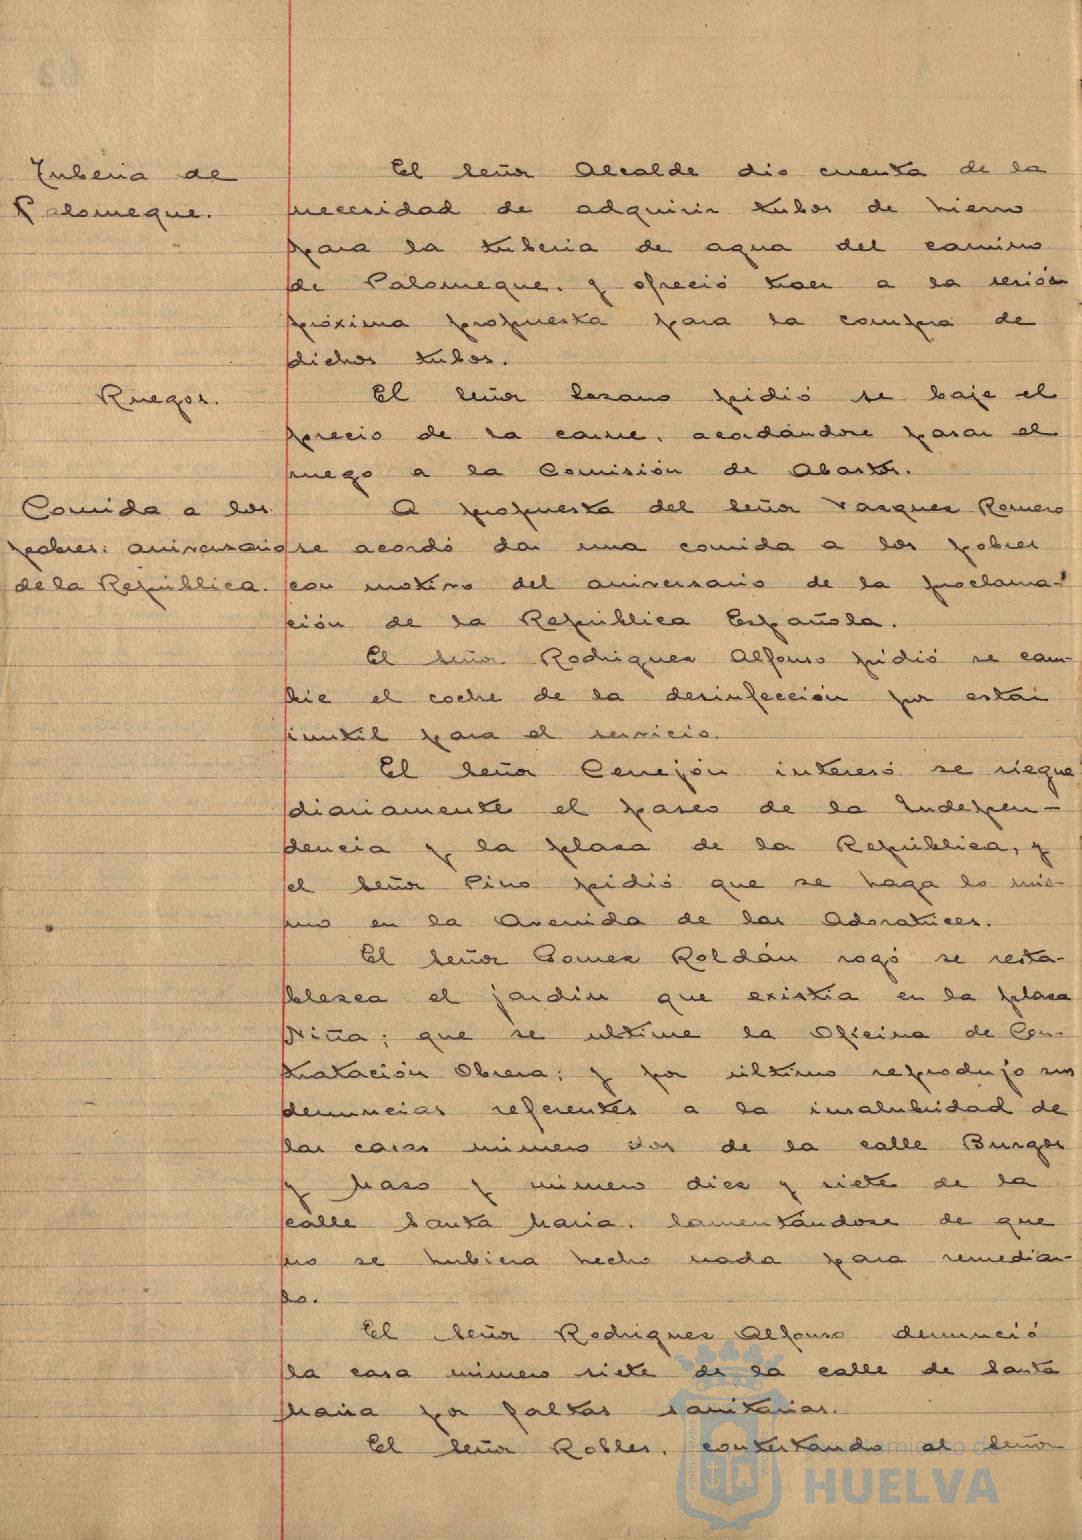 Tuberia de
Palomeque.
El Señor Alcalde dio cuenta de la
necesidad de adquirir tubos de hierro
para la tuberia de agua del camino
de Palomeque. y ofreció traer a la sesión
próxima propuesta para la compra de
dichos tubos.
Ruegos.
El Señor Lozano pidió se baje el
precio de la carne, acordándose pasar el
ruego a la Comisión de Abastos.
Comida a los
pobres: aniversario
de la República.
A propuesta del Señor Vazquez Romero
se acordó dar una comida a los pobres
con motivo del aniversario de la proclama-
ción de la República Española.
El Señor Rodriguez Alfonso pidió se cam-
bie el coche de la desinfección por estar
inutil para el servicio.
El Señor Cerrejón interesó se riegue
diariamente el paseo de la Indepen-
dencia y la plaza de la República, y
el Señor Pino pidió que se haga lo mis-
mo en la Avenida de las Adoratrices.
El Señor Gomez Roldán rogó se resta-
blezca el jardin que existia en la plaza
Niña; que se ultime la Oficina de Con-
tratación Obrera; y por último reprodujo sus
denuncias referentes a la insalubridad de
las casas número dos de la calle Burgos
y Mazo y número diez y siete de la
calle Santa Maria. lamentándose de que
no se hubiera hecho nada para remediar-
lo.
El Señor Rodriguez Alfonso denunció
la casa número siete de la calle de Santa
Maria por faltas sanitarias.
El Señor Robles, contestando al Señor
Ayuntamiento de
HUELVA